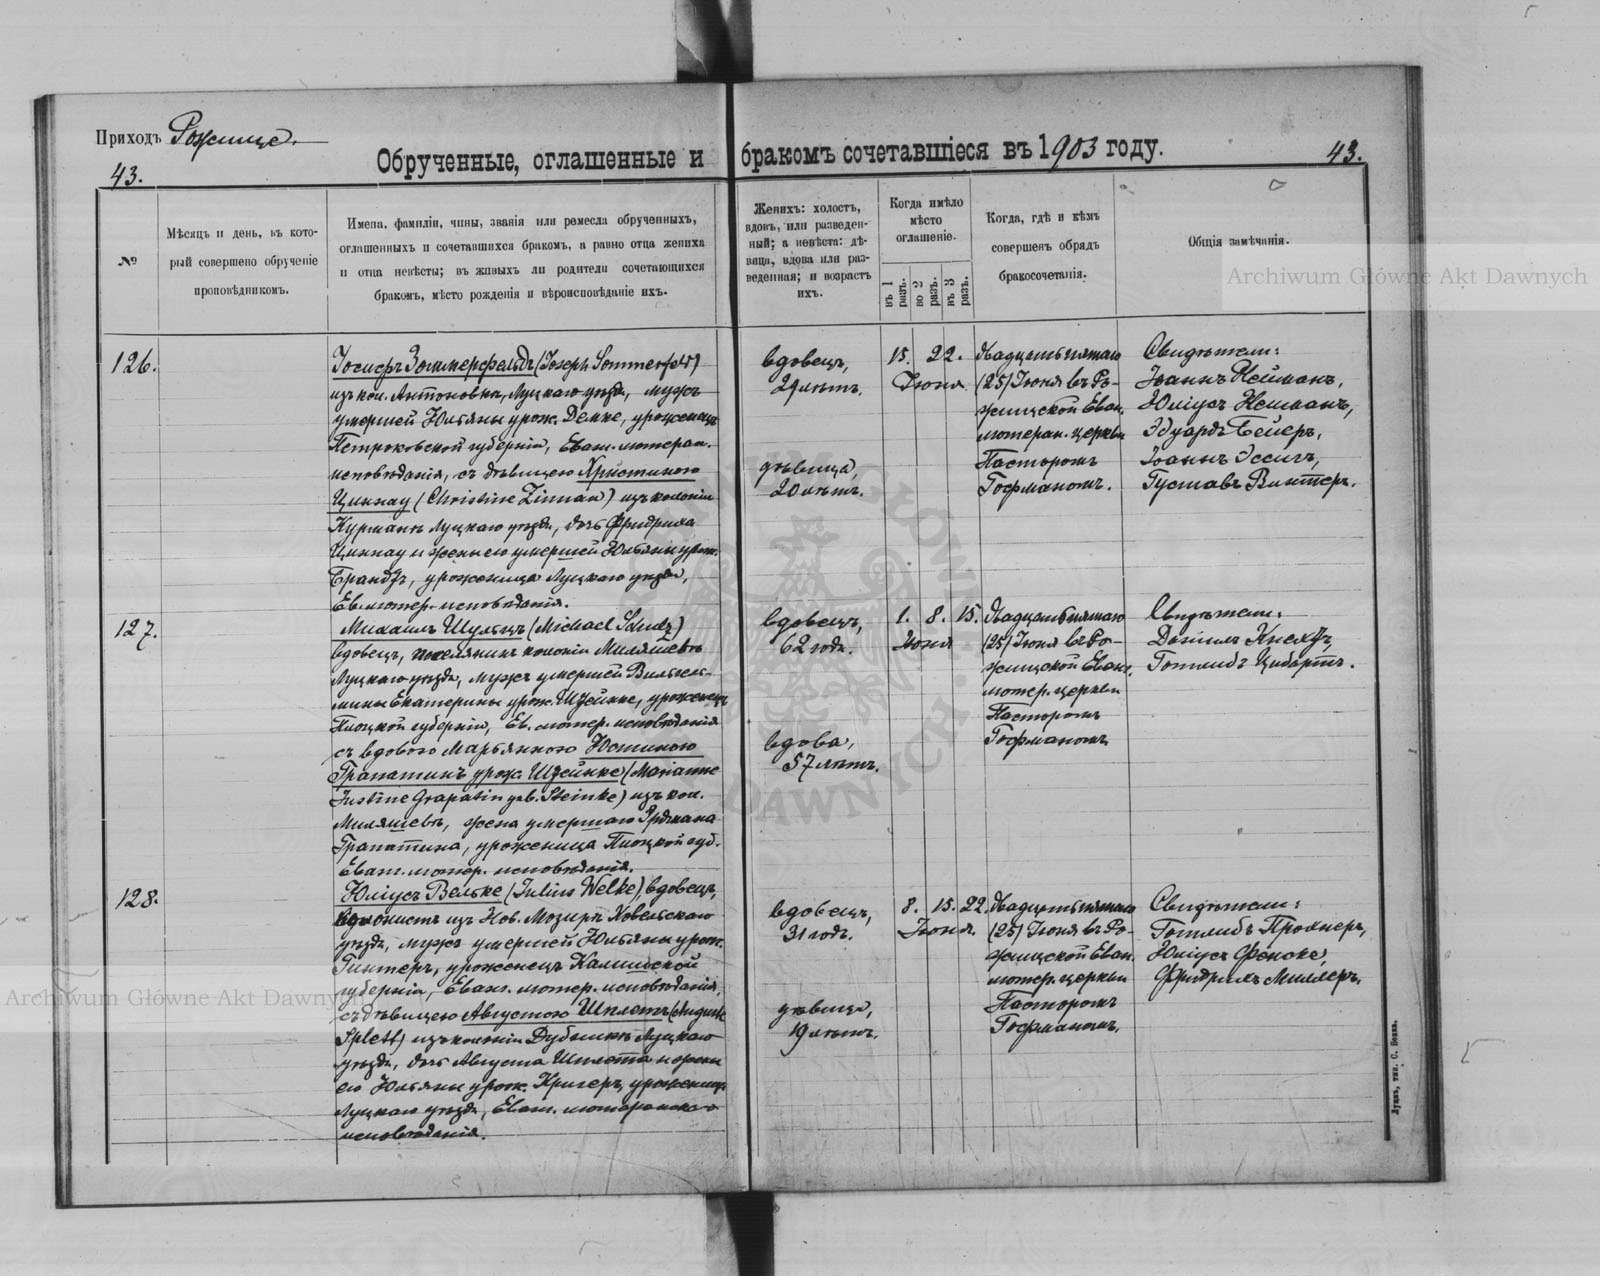 Приходъ Рожище.
43.
Обрученные, оглашенные и бракомъ сочетавшіеся въ 1903 году.
43.
№
Мѣсяцъ и день, въ кото-
рый совершено обрученіе
проповѣдникомъ.
Имена, фамиліи, чины, званія или ремесла обрученныхъ,
оглашенныхъ и сочетавшихся бракомъ, а равно отца жениха
и отца невѣсты; въ живыхъ ли родители сочетающихся
бракомъ, мѣсто рожденія и вѣроисповѣданіе ихъ.
Женихъ: холостъ,
вдовъ, или разведен-
ный; а невѣста: дѣ-
вица, вдова или раз-
веденная; и возрастъ
ихъ.
Когда имѣло
мѣсто
оглашеніе.
въ 1 разъ.
во 2 разъ.
въ 3 разъ.
Когда, гдѣ и кѣмъ
совершенъ обрядъ
бракосочетанія.
Общія замѣчанія.
Archiwum Główne Akt Dawnych
126.
Іосифъ Зоммерфельдъ (Joseph Sommerfeld)
изъ кол. Антоновка, Луцкаго уѣзда, мужъ
умершей Юльяны урож. Демке, уроженецъ
Петроковской губерніи, Еванг. лютеран.
исповѣданія, съ дѣвицею Христиною
Циннау (Christine Zinnau) изъ колоніи
Курманъ Луцкаго уѣзда, дочь Фридриха
Циннау и жены его умершей Юльяны урож.
Брандтъ, уроженица Луцкаго уѣзда,
Ев. лютер. исповѣданія.
вдовецъ,
29 лѣтъ.
дѣвица,
20 лѣтъ.
15. 22.
Іюня
двадцать пятаго
(25) Іюня въ Ро-
жищской Еван.
лютеран. церкви
Пасторомъ
Гофманомъ.
Свидѣтели:
Іоаннъ Нейманъ,
Юліусъ Нейманъ,
Эдуардъ Бейеръ,
Іоаннъ Эссигъ,
Густавъ Винтеръ.
127.
Михаилъ Шульцъ (Michael Schulz)
вдовецъ, поселянинъ колоніи Миляшевъ
Луцкаго уѣзда, мужъ умершей Вильгель-
мины Екатерины урож. Штейнке, уроженецъ
Плоцкой губерніи, Ев. лютер. исповѣданія
съ вдовою Марьянною Юстиною
Грапатинъ урож. Штейнке (Marianne
Justine Grapatin geb. Steinke) изъ кол.
Миляшевъ, жена умершаго Эрдмана
Грапатина, уроженица Плоцкой губ.
Еванг. лютер. исповѣданія.
вдовецъ,
62 годъ.
вдова,
57 лѣтъ.
1. 8. 15.
Іюня
двадцать пятаго
(25) Іюня въ Ро-
жищской Еванг.
лютер. церкви
Пасторомъ
Гофманомъ
Свидѣтели:
Даніилъ Кнехтъ,
Готлибъ Цибартъ.
128.
Юліусъ Вельке (Julius Welke), вдовецъ,
колонистъ изъ Нов. Мозыръ Ковельскаго
уѣзда, мужъ умершей Юльяны урож.
Гинтеръ, уроженецъ Калишской
губерніи, Еванг. лютер. исповѣданія,
съ дѣвицею Августою Шплетъ (Auguste
Splett) изъ колоніи Дубыще Луцкаго
уѣзда, дочь Августа Шплета и жены
его Юльяны урож. Кригеръ, уроженица
Луцкаго уѣзда, Еванг. лютеранскаго
исповѣданія.
вдовецъ,
31 годъ.
дѣвица,
19 лѣтъ.
8. 15. 22.
Іюня.
двадцать пятаго
(25) Іюня въ Ро-
жищской Еван.
лютер. церкви
Пасторомъ
Гофманомъ.
Свидѣтели:
Готлибъ Прохнеръ,
Юліусъ Фенске,
Фридрихъ Миллеръ.
Archiwum Główne Akt Dawnych
Луцкъ, тип. С. Бонка.